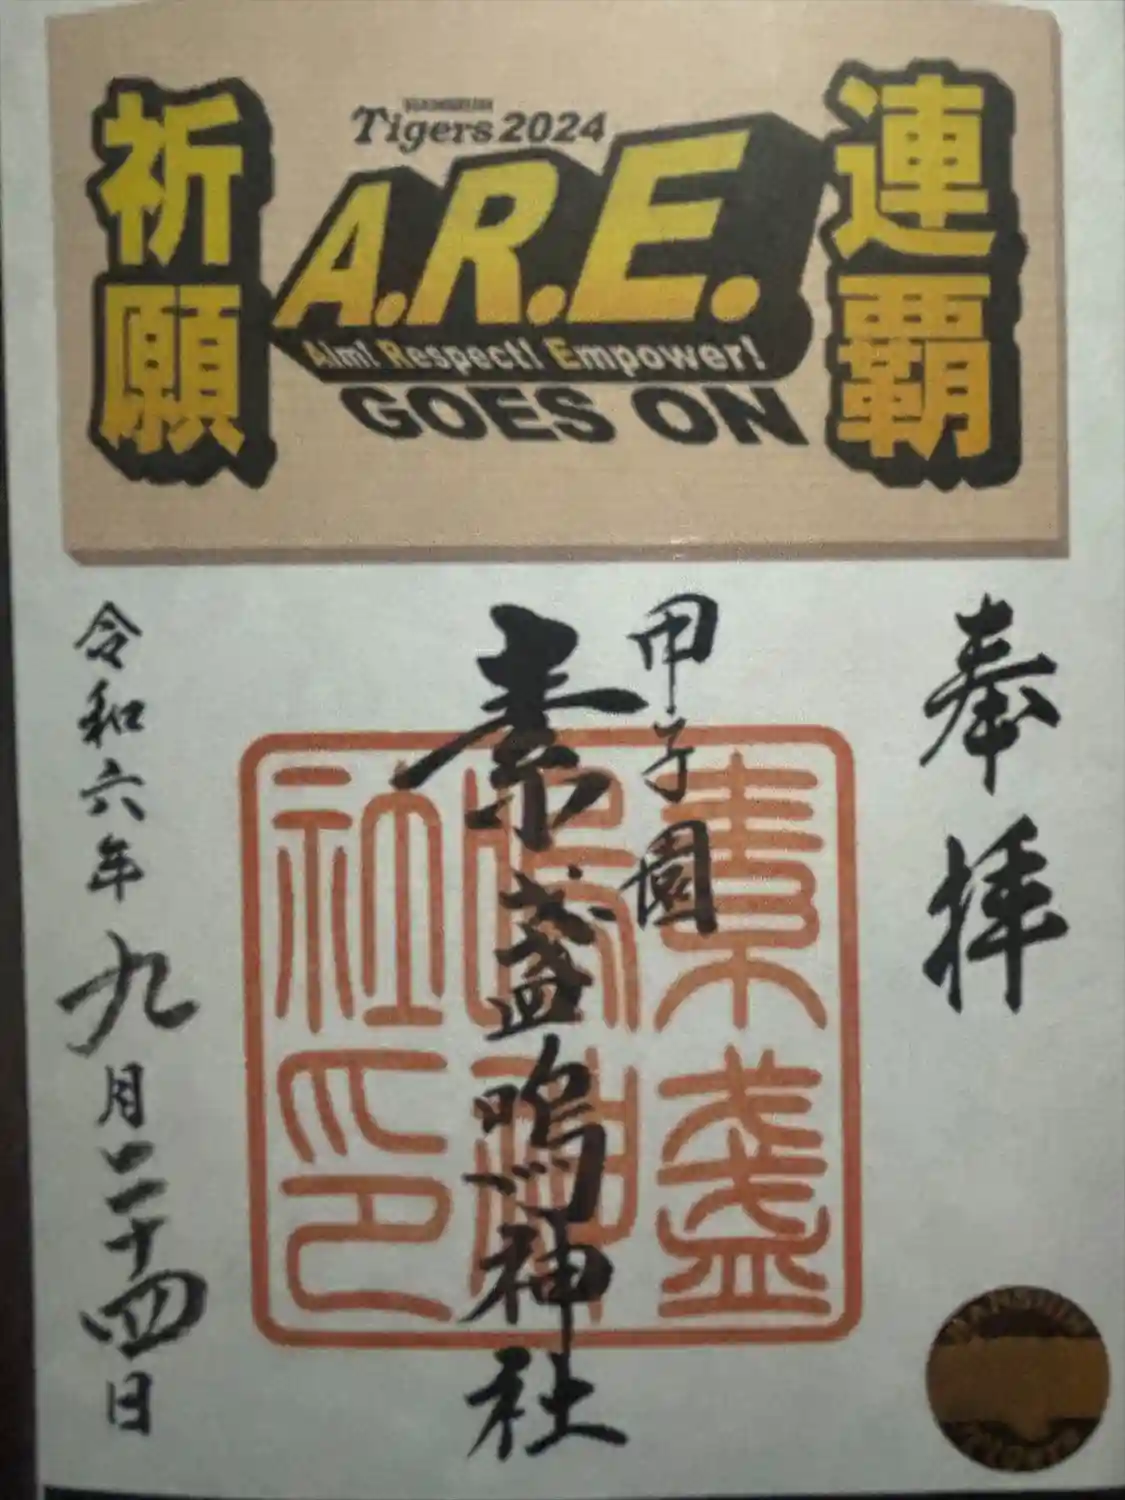 祈願
Tigers 2024
A.R.E.
Aim! Respect! Empower!
GOES ON
連覇
奉拝
甲子園
素盞嗚神社
素盞
嗚神
社印
令和六年九月二十四日
HANSHIN